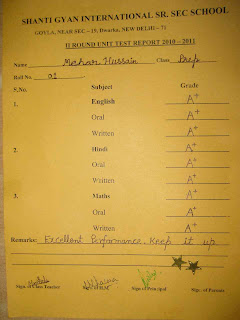 SHANTI GYAN INTERNATIONAL SR. SEC SCHOOL
GOYLA, NEAR SEC – 19, Dwarka, NEW DELHI – 71
II ROUND UNIT TEST REPORT 2010 – 2011
Name Mezhar Hussain Class Prep
Roll No. 01
S.No. Subject Grade
1. English A+
Oral A+
Written A+
2. Hindi A+
Oral A+
Written A+
3. Maths A+
Oral A+
Written A+
Remarks: Excellent Performance. Keep it up
Sign. of Class Teacher Sign. of H.M. Sign. of Principal Sign. of Parents